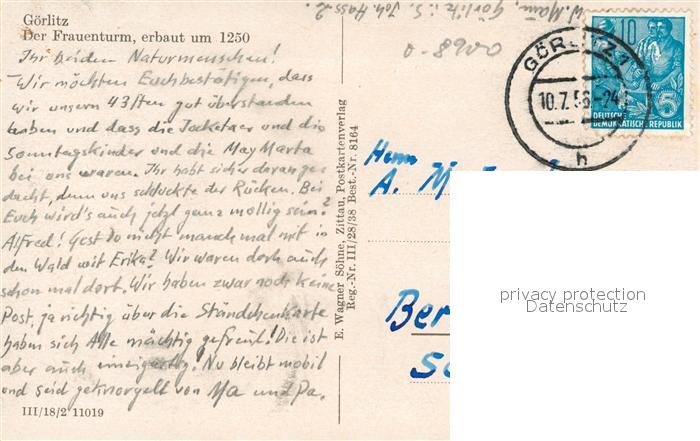 Görlitz
Der Frauenturm, erbaut um 1250
Ihr beiden Naturmenschen!
Wir möchten Euch bestätigen, dass
wir unsern 43sten gut überstanden
haben und dass die und die
Sonntagskinder und die May Marta
bei uns waren. Ihr habt sicher daran ge-
dacht, denn uns schluckte der Rücken. Bei
Euch wird's auch jetzt ganz mollig sein?
Alfred! Gest Du nicht manchmal mit in
den Wald mit Erika? Wir waren doch auch
schon mal dort. Wir haben zwar noch keine
Post, ja richtig über die Ständchenkarte
haben sich Alle mächtig gefreut! Die ist
aber auch einzigartig! Nu bleibt mobil
und seid geknorgelt von Ma und Pa.
III/18/2 11019
E. Wagner Söhne, Zittau, Postkartenverlag
Reg.-Nr. III/28/38 Best.-Nr. 8164
Görlitz i. S. Joh. Hass
0068-0
GÖRLITZ 1
10.7.56.-24
h
10
5
DEUTSCHE
DEMOKRATISCHE REPUBLIK
Herrn
A. M
Ber
privacy protection
Datenschutz